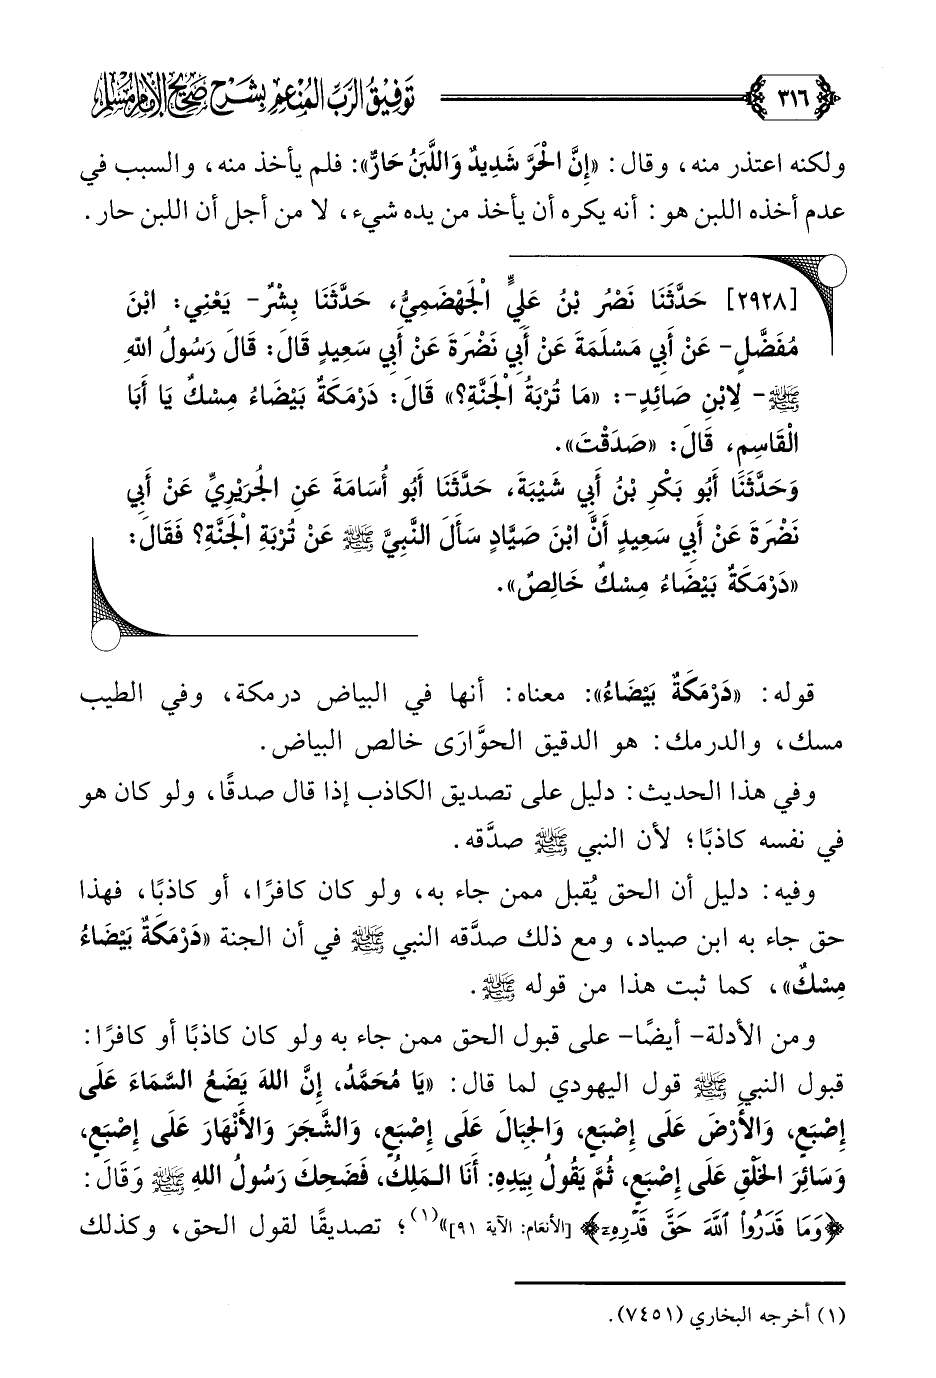 ٣١٦ توفيق الرب المنعم بشرح صحيح الإمام مسلم
ولكنه اعتذر منه، وقال: «إِنَّ الْحَرَّ شَدِيدٌ وَاللَّبَنُ حَارٌّ»: فلم يأخذ منه، والسبب في
عدم أخذه اللبن هو: أنه يكره أن يأخذ من يده شيء، لا من أجل أن اللبن حار.
[٢٩٢٨] حَدَّثَنَا نَصْرُ بْنُ عَلِيٍّ الْجَهْضَمِيُّ، حَدَّثَنَا بِشْرٌ- يَعْنِي: ابْنَ
مُفَضَّلٍ- عَنْ أَبِي مَسْلَمَةَ عَنْ أَبِي نَضْرَةَ عَنْ أَبِي سَعِيدٍ قَالَ: قَالَ رَسُولُ اللهِ
ﷺ- لِابْنِ صَائِدٍ-: «مَا تُرْبَةُ الْجَنَّةِ؟» قَالَ: دَرْمَكَةٌ بَيْضَاءُ مِسْكٌ يَا أَبَا
الْقَاسِمِ، قَالَ: «صَدَقْتَ».
وَحَدَّثَنَا أَبُو بَكْرِ بْنُ أَبِي شَيْبَةَ، حَدَّثَنَا أَبُو أُسَامَةَ عَنِ الْجُرَيْرِيِّ عَنْ أَبِي
نَضْرَةَ عَنْ أَبِي سَعِيدٍ أَنَّ ابْنَ صَيَّادٍ سَأَلَ النَّبِيَّ ﷺ عَنْ تُرْبَةِ الْجَنَّةِ؟ فَقَالَ:
«دَرْمَكَةٌ بَيْضَاءُ مِسْكٌ خَالِصٌ».
قوله: «دَرْمَكَةٌ بَيْضَاءُ»: معناه: أنها في البياض درمكة، وفي الطيب
مسك، والدرمك: هو الدقيق الحوَّارَى خالص البياض.
وفي هذا الحديث: دليل على تصديق الكاذب إذا قال صدقًا، ولو كان هو
في نفسه كاذبًا؛ لأن النبي ﷺ صدَّقه.
وفيه: دليل أن الحق يُقبل ممن جاء به، ولو كان كافرًا، أو كاذبًا، فهذا
حق جاء به ابن صياد، ومع ذلك صدَّقه النبي ﷺ في أن الجنة «دَرْمَكَةٌ بَيْضَاءُ
مِسْكٌ»، كما ثبت هذا من قوله ﷺ.
ومن الأدلة- أيضًا- على قبول الحق ممن جاء به ولو كان كاذبًا أو كافرًا:
قبول النبي ﷺ قول اليهودي لما قال: «يَا مُحَمَّدُ، إِنَّ اللهَ يَضَعُ السَّمَاءَ عَلَى
إِصْبَعٍ، وَالْأَرْضَ عَلَى إِصْبَعٍ، وَالْجِبَالَ عَلَى إِصْبَعٍ، وَالشَّجَرَ وَالْأَنْهَارَ عَلَى إِصْبَعٍ،
وَسَائِرَ الْخَلْقِ عَلَى إِصْبَعٍ، ثُمَّ يَقُولُ بِيَدِهِ: أَنَا الْمَلِكُ، فَضَحِكَ رَسُولُ اللهِ ﷺ وَقَالَ:
﴿وَمَا قَدَرُوا۟ ٱللَّهَ حَقَّ قَدْرِهِۦ﴾ [الأنعَام: الآية ٩١]»(١)؛ تصديقًا لقول الحق، وكذلك
(١) أخرجه البخاري (٧٤٥١).